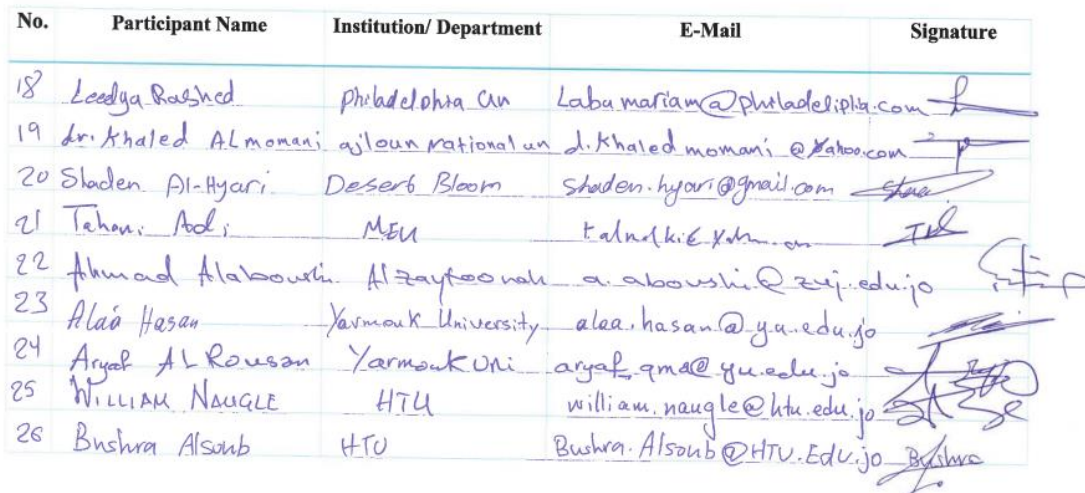 No. Participant Name Institution/ Department E-Mail Signature
18 Leedya Rashed Philadelphia un Labumariam@philadeliphia.com
19 dr. Khaled ALmomani ajloun national un d.khaledmomani@Yahoo.com
20 Shaden Al-Hyari Desert Bloom shaden.hyari@gmail.com
21 Tahani Adi MEU
22 Ahmad Alaboushi Alzaytoonah a.aboushi@zuj.edu.jo
23 Alaá Hasan Yarmouk University alaa.hasan@yu.edu.jo
24 Aryaf AL Rousan Yarmouk Uni aryaf_qma@yu.edu.jo
25 WILLIAM NAUGLE HTU william.naugle@htu.edu.jo
26 Bushra Alsoub HTU Bushra.Alsoub@HTU.Edu.jo Bushra